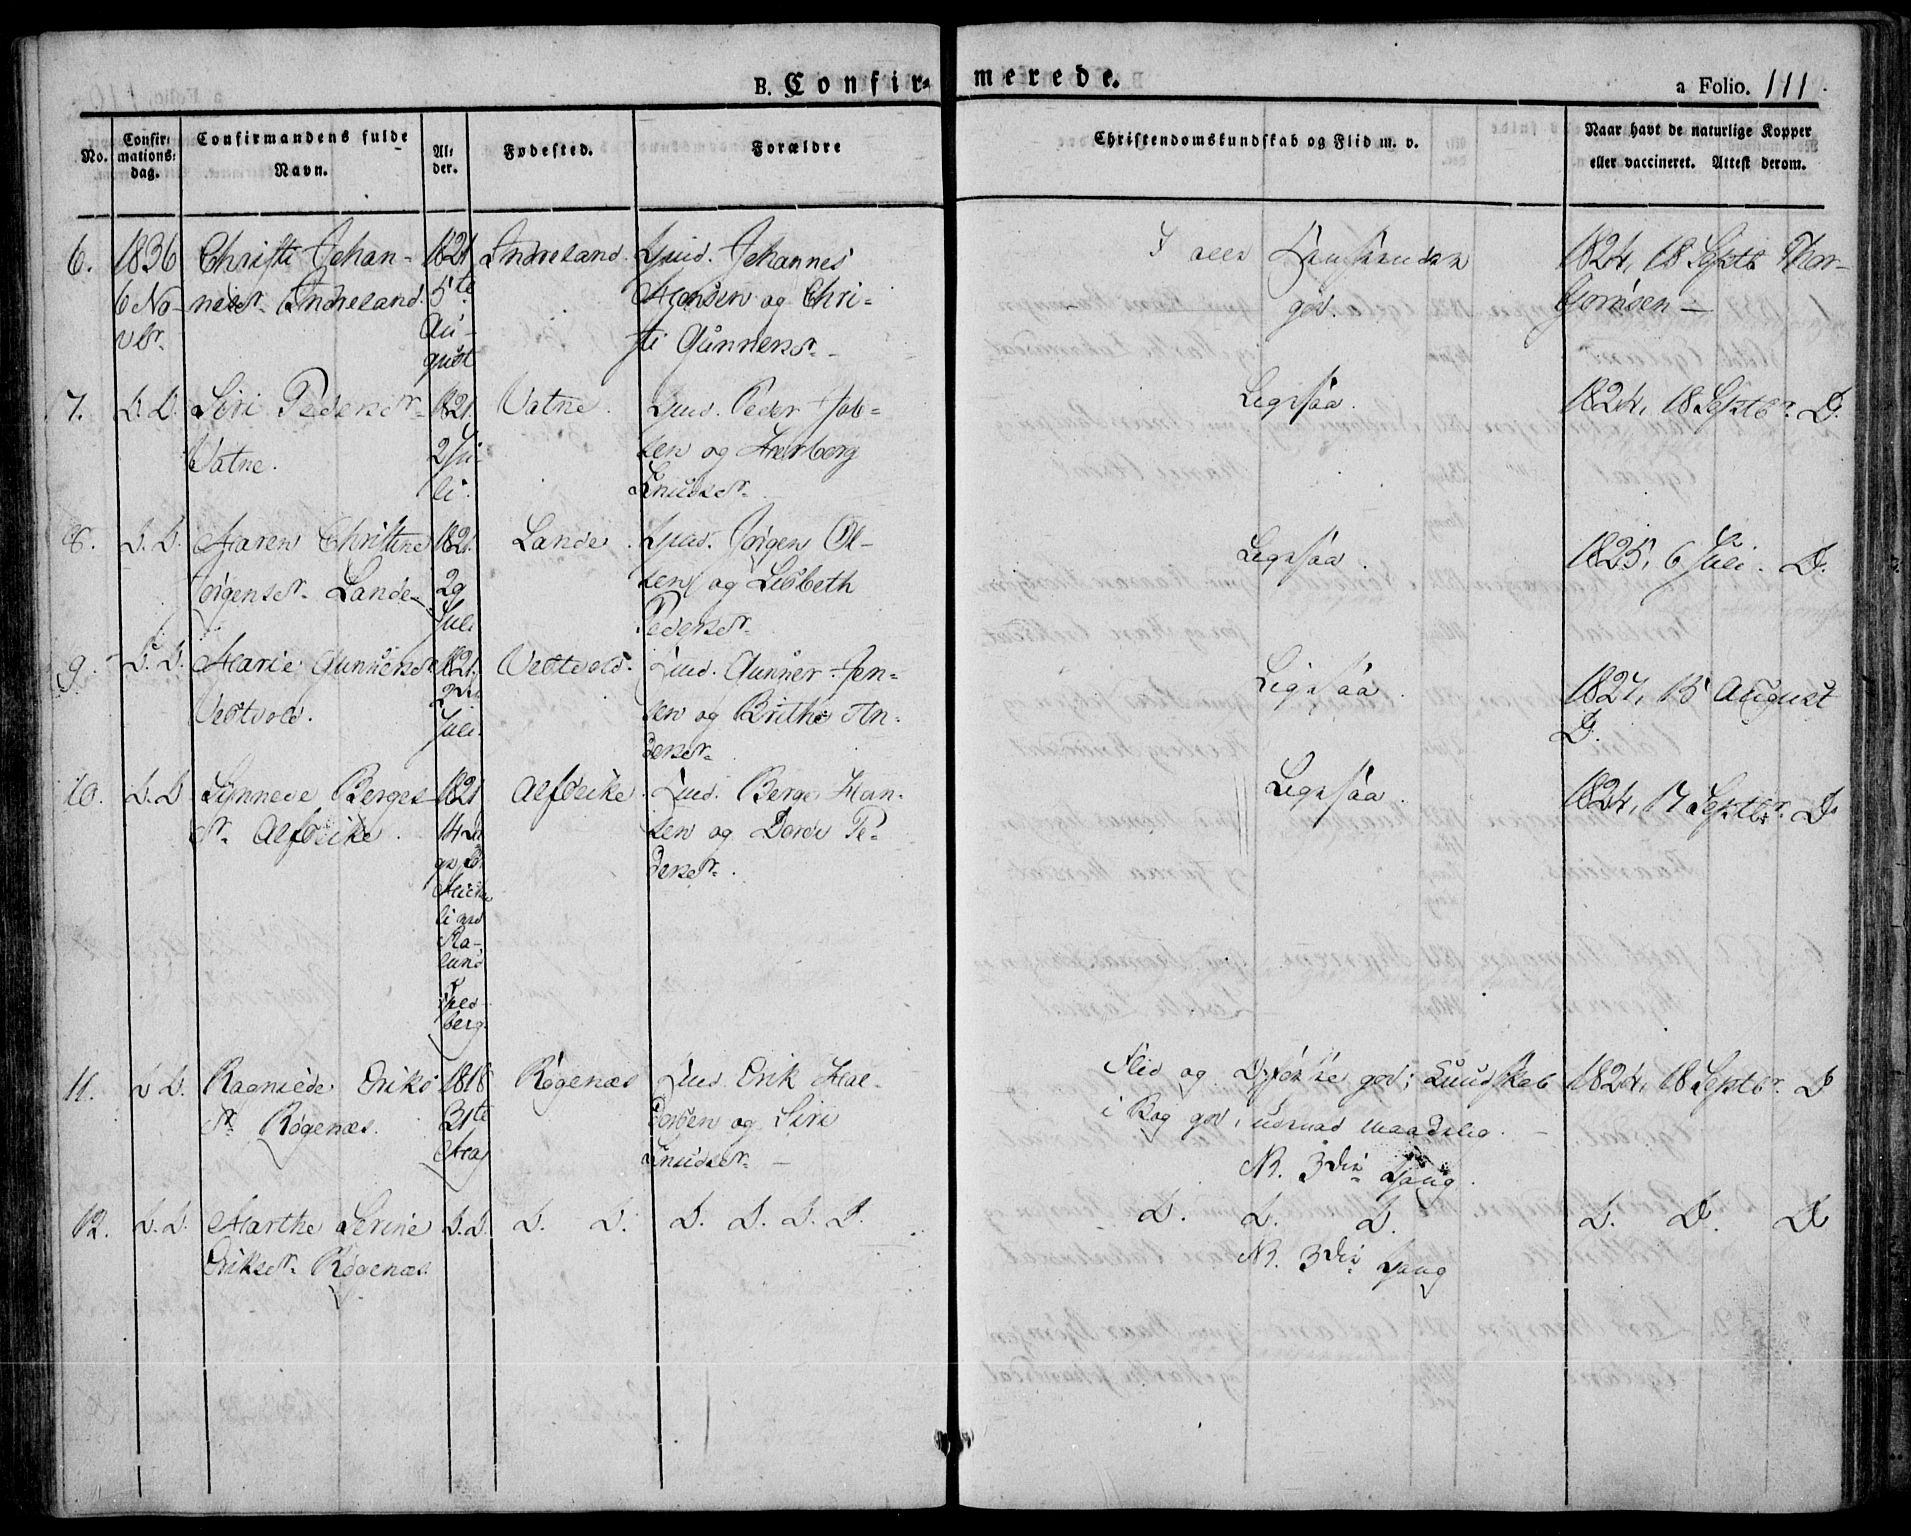 B. Confir-merede.
a Folio. 111.
No.
Confir-
mations-
dag.
Confirmandens fulde
Navn.
Al-
der.
Fødested.
Forældre
Christendomskundskab og Flid m. v.
Naar havt de naturlige Kopper
eller vaccineret. Attest derom.
6.
1836
6 No-
vbr.
Christi Johan-
nesdr. Indreland
1821
5te
Au-
gust
Indreland.
Gmd. Johannes
Monsen og Chri-
sti Gunnersdr.
I alle
god.
1824, 18 Septb Thor-
Gjorøsen
7.
D. D.
Siri Pedersdr.
Vatne.
1821.
2 Ju-
li.
Vatne.
Gmd. Peder
sen og Herborg
Knudsdr.
Ligesaa.
1824, 18 Septbr. D.
8.
D. D.
Maren Christine
Jørgensdr. Lande
1821.
29
Juli
Lande.
Gmd. Jørgen Ol-
sen og Lisbeth
Pedersdr.
Ligesaa.
1825, 6 Juli. D.
9.
D. D.
Marie Gunnersdr
Vestvold.
1821.
Juli.
Vestvold.
Gmd. Gunner Jen-
sen og Brithe An-
dersdr.
Ligesaa.
1827, 15 August
D.
10.
D. D
Sünneve Berges-
dr.
1821
14
berg.
Gmd. Berge Han-
sen og Dorde Pe-
dersdr.
Ligesaa.
1824, 17 Septbr. D.
11.
D D.
Ragnilde Eriks
dr. Røgenæs.
1818
31te
Mai
Røgenæs
Gmd. Erik Hal-
vorsen og Siri
Knudsdr.
Flid og god; Kundskab
i Bog god, udenad maadelig.
NB. 3die Gang.
1824, 18 Septbr. D
12.
D. D.
Marthe Serine
Eriksdr. Røgenæs.
D. D.
D. D.
D. D. D. D.
D. D. D.
NB. 3die Gang
D. D. D.